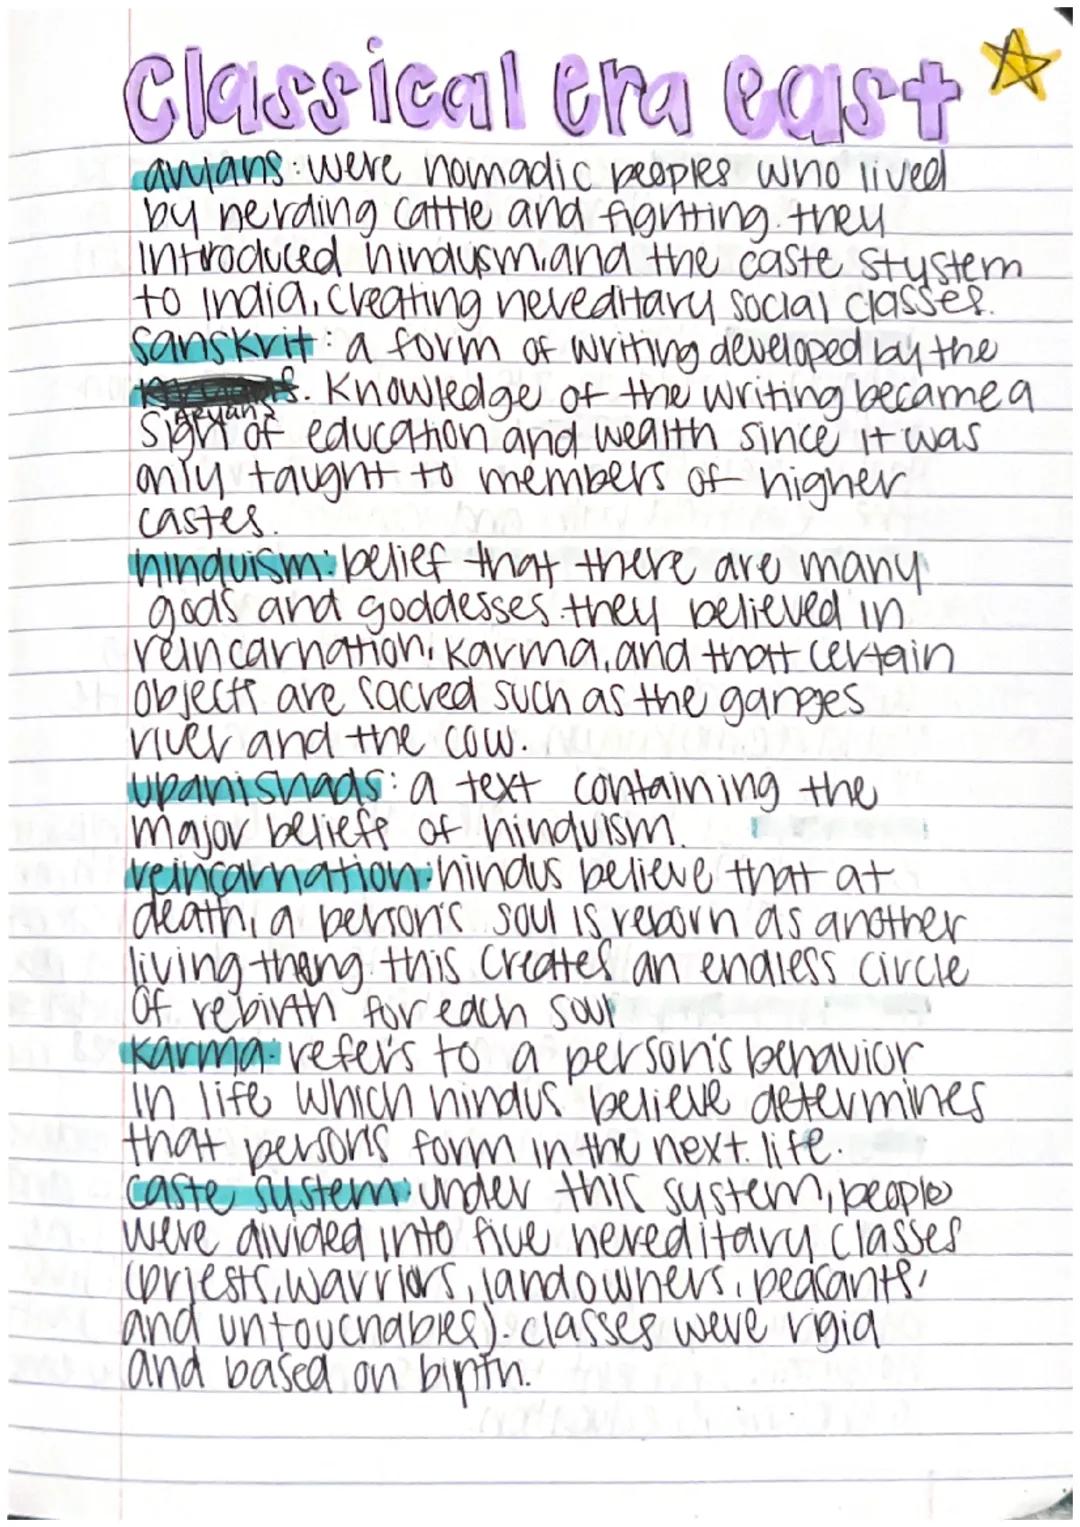 Classical era east
aryans: were nomadic peoples who lived
by herding cattle and fighting. they
introduced hinduism, and the caste stystem
to india, creating hereditary social classes.
sanskrit: a form of writing developed by the
aryans. Knowledge of the writing became a
sign of education and wealth since it was
only taught to members of higher
castes.
hinduism: belief that there are many
gods and goddesses. they believed in
reincarnation, karma, and that certain
objects are sacred such as the ganges
river and the cow.
upanishads: a text containing the
major beliefs of hinduism.
reincarnation: hindus believe that at
death, a person's soul is reborn as another
living thing. this creates an endless circle
of rebirth for each soul
karma: refers to a person's behavior
in life which hindus believe determines
that person's form in the next life.
caste system: under this system, people
were divided into five hereditary classes
(priests, warriors, landowners, peasants,
and untouchables). classes were rigid
and based on birth.